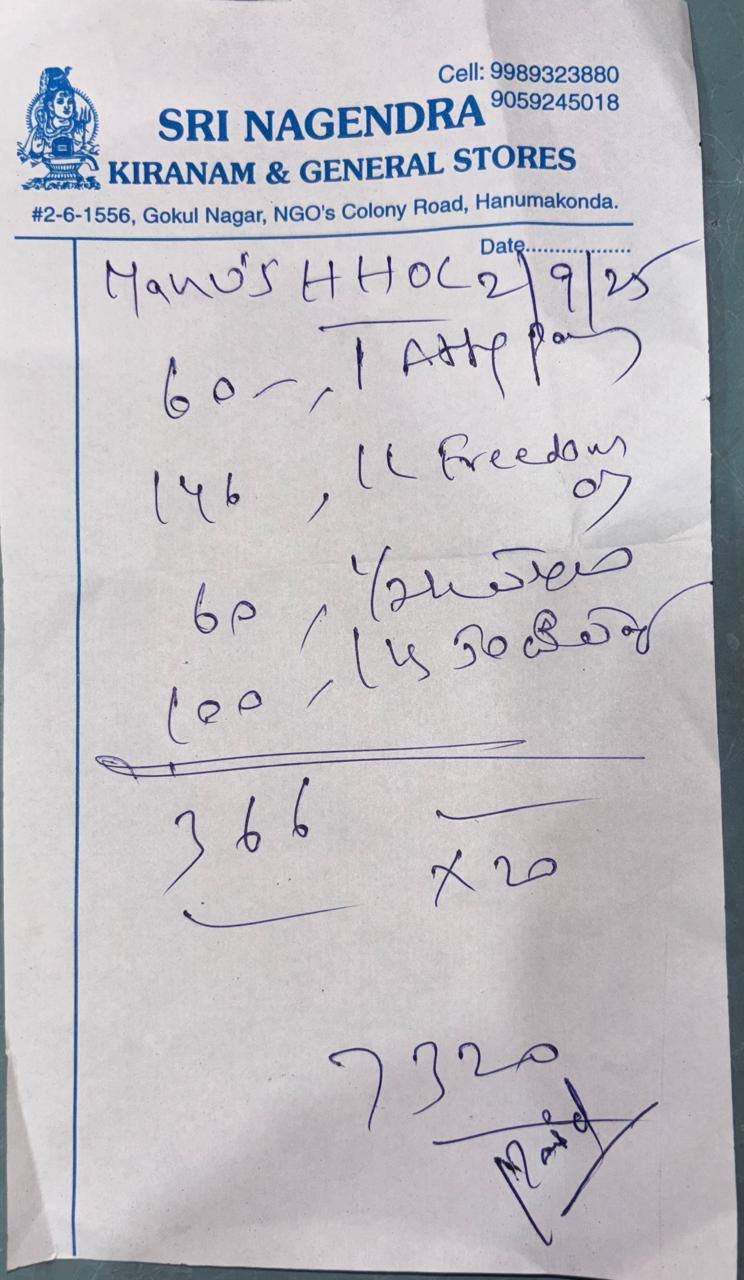 Cell: 9989323880
9059245018
SRI NAGENDRA
KIRANAM & GENERAL STORES
#2-6-1556, Gokul Nagar, NGO's Colony Road, Hanumakonda.
Date...................
Manu's HHOC 2/9/25
60 , 1
146 , 1L Freedom
60 , 1/2
100 , 1
366
× 20
7320
Paid